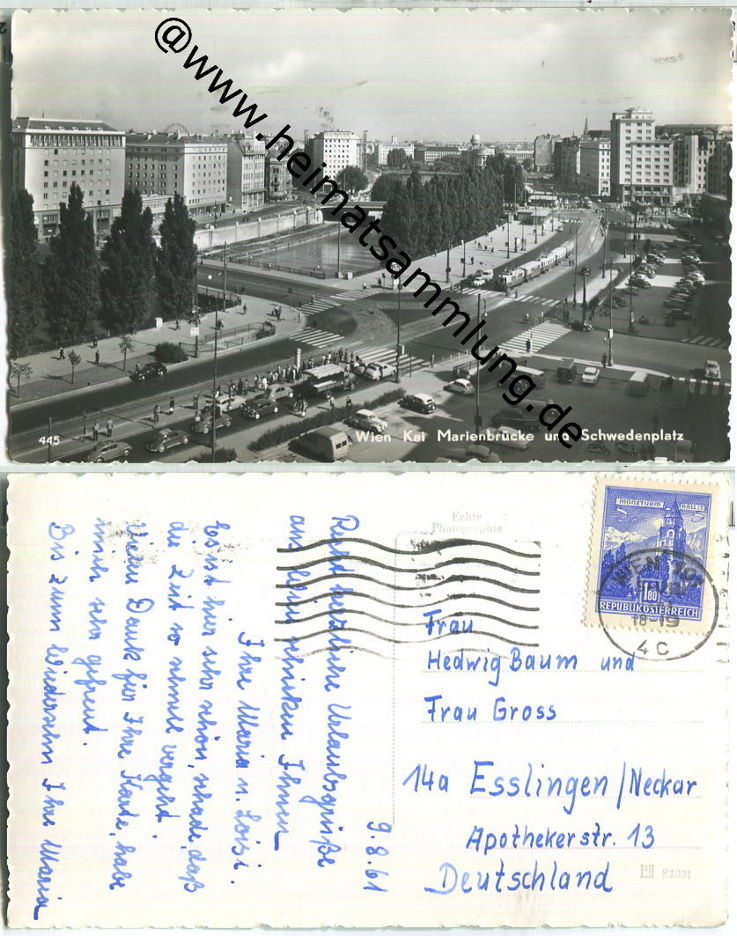 @www.heimatsammlung.de
445
Wien Kai Marienbrücke und Schwedenplatz
Echte
Photographie
MÜNZTURM
1.80
REPUBLIK ÖSTERREICH
WIEN
18-19
4C
9.8.61
Recht herzliche Urlaubsgrüße
aus Wien schicken Ihnen
Ihre Maria u. Loisi.
Es ist hier sehr schön, schade, daß
die Zeit so schnell vergeht.
Vielen Dank für Ihre Karte, habe
mich sehr gefreut.
Bis zum Wiedersehn Ihre Maria
Frau
Hedwig Baum und
Frau Gross
14a Esslingen/Neckar
Apothekerstr. 13
Deutschland